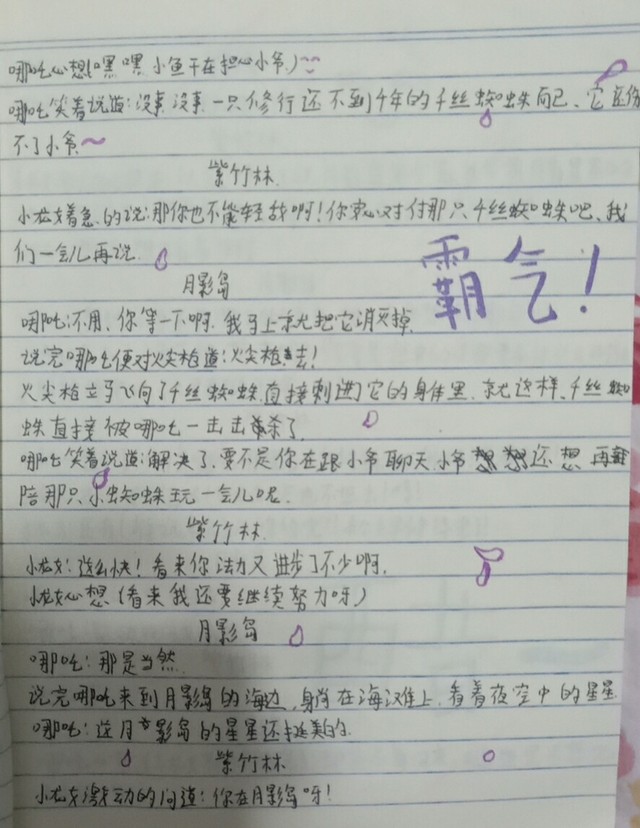 哪吒心想(嘿嘿 小鱼干在担心小爷)~~
哪吒笑着说道:没事没事 一只修行还不到千年的千丝蜘蛛而已、它还伤
不了小爷~
紫竹林
小龙女着急的说:那你也不能轻敌啊!你专心对付那只千丝蜘蛛吧、我
们一会儿再说
月影岛
霸气!
哪吒:不用、你等一下啊 我马上就把它消灭掉
说完哪吒便对火尖枪道:火尖枪 去!
火尖枪立马飞向了千丝蜘蛛 直接刺进它的身体里、就这样、千丝蜘
蛛直接被哪吒一击击杀了
哪吒笑着说道:解决了、要不是你在跟小爷聊天 小爷 还想再
陪那只小蜘蛛玩一会儿呢
紫竹林
小龙女:这么快!看来你法力又进步了不少啊、
小龙女心想(看来我还要继续努力呀)
月影岛
哪吒:那是当然
说完哪吒来到月影岛的海边、躺在海滩上、看着夜空中的星星
哪吒:这月影岛的星星还挺美的
紫竹林
小龙女激动的问道:你在月影岛呀!